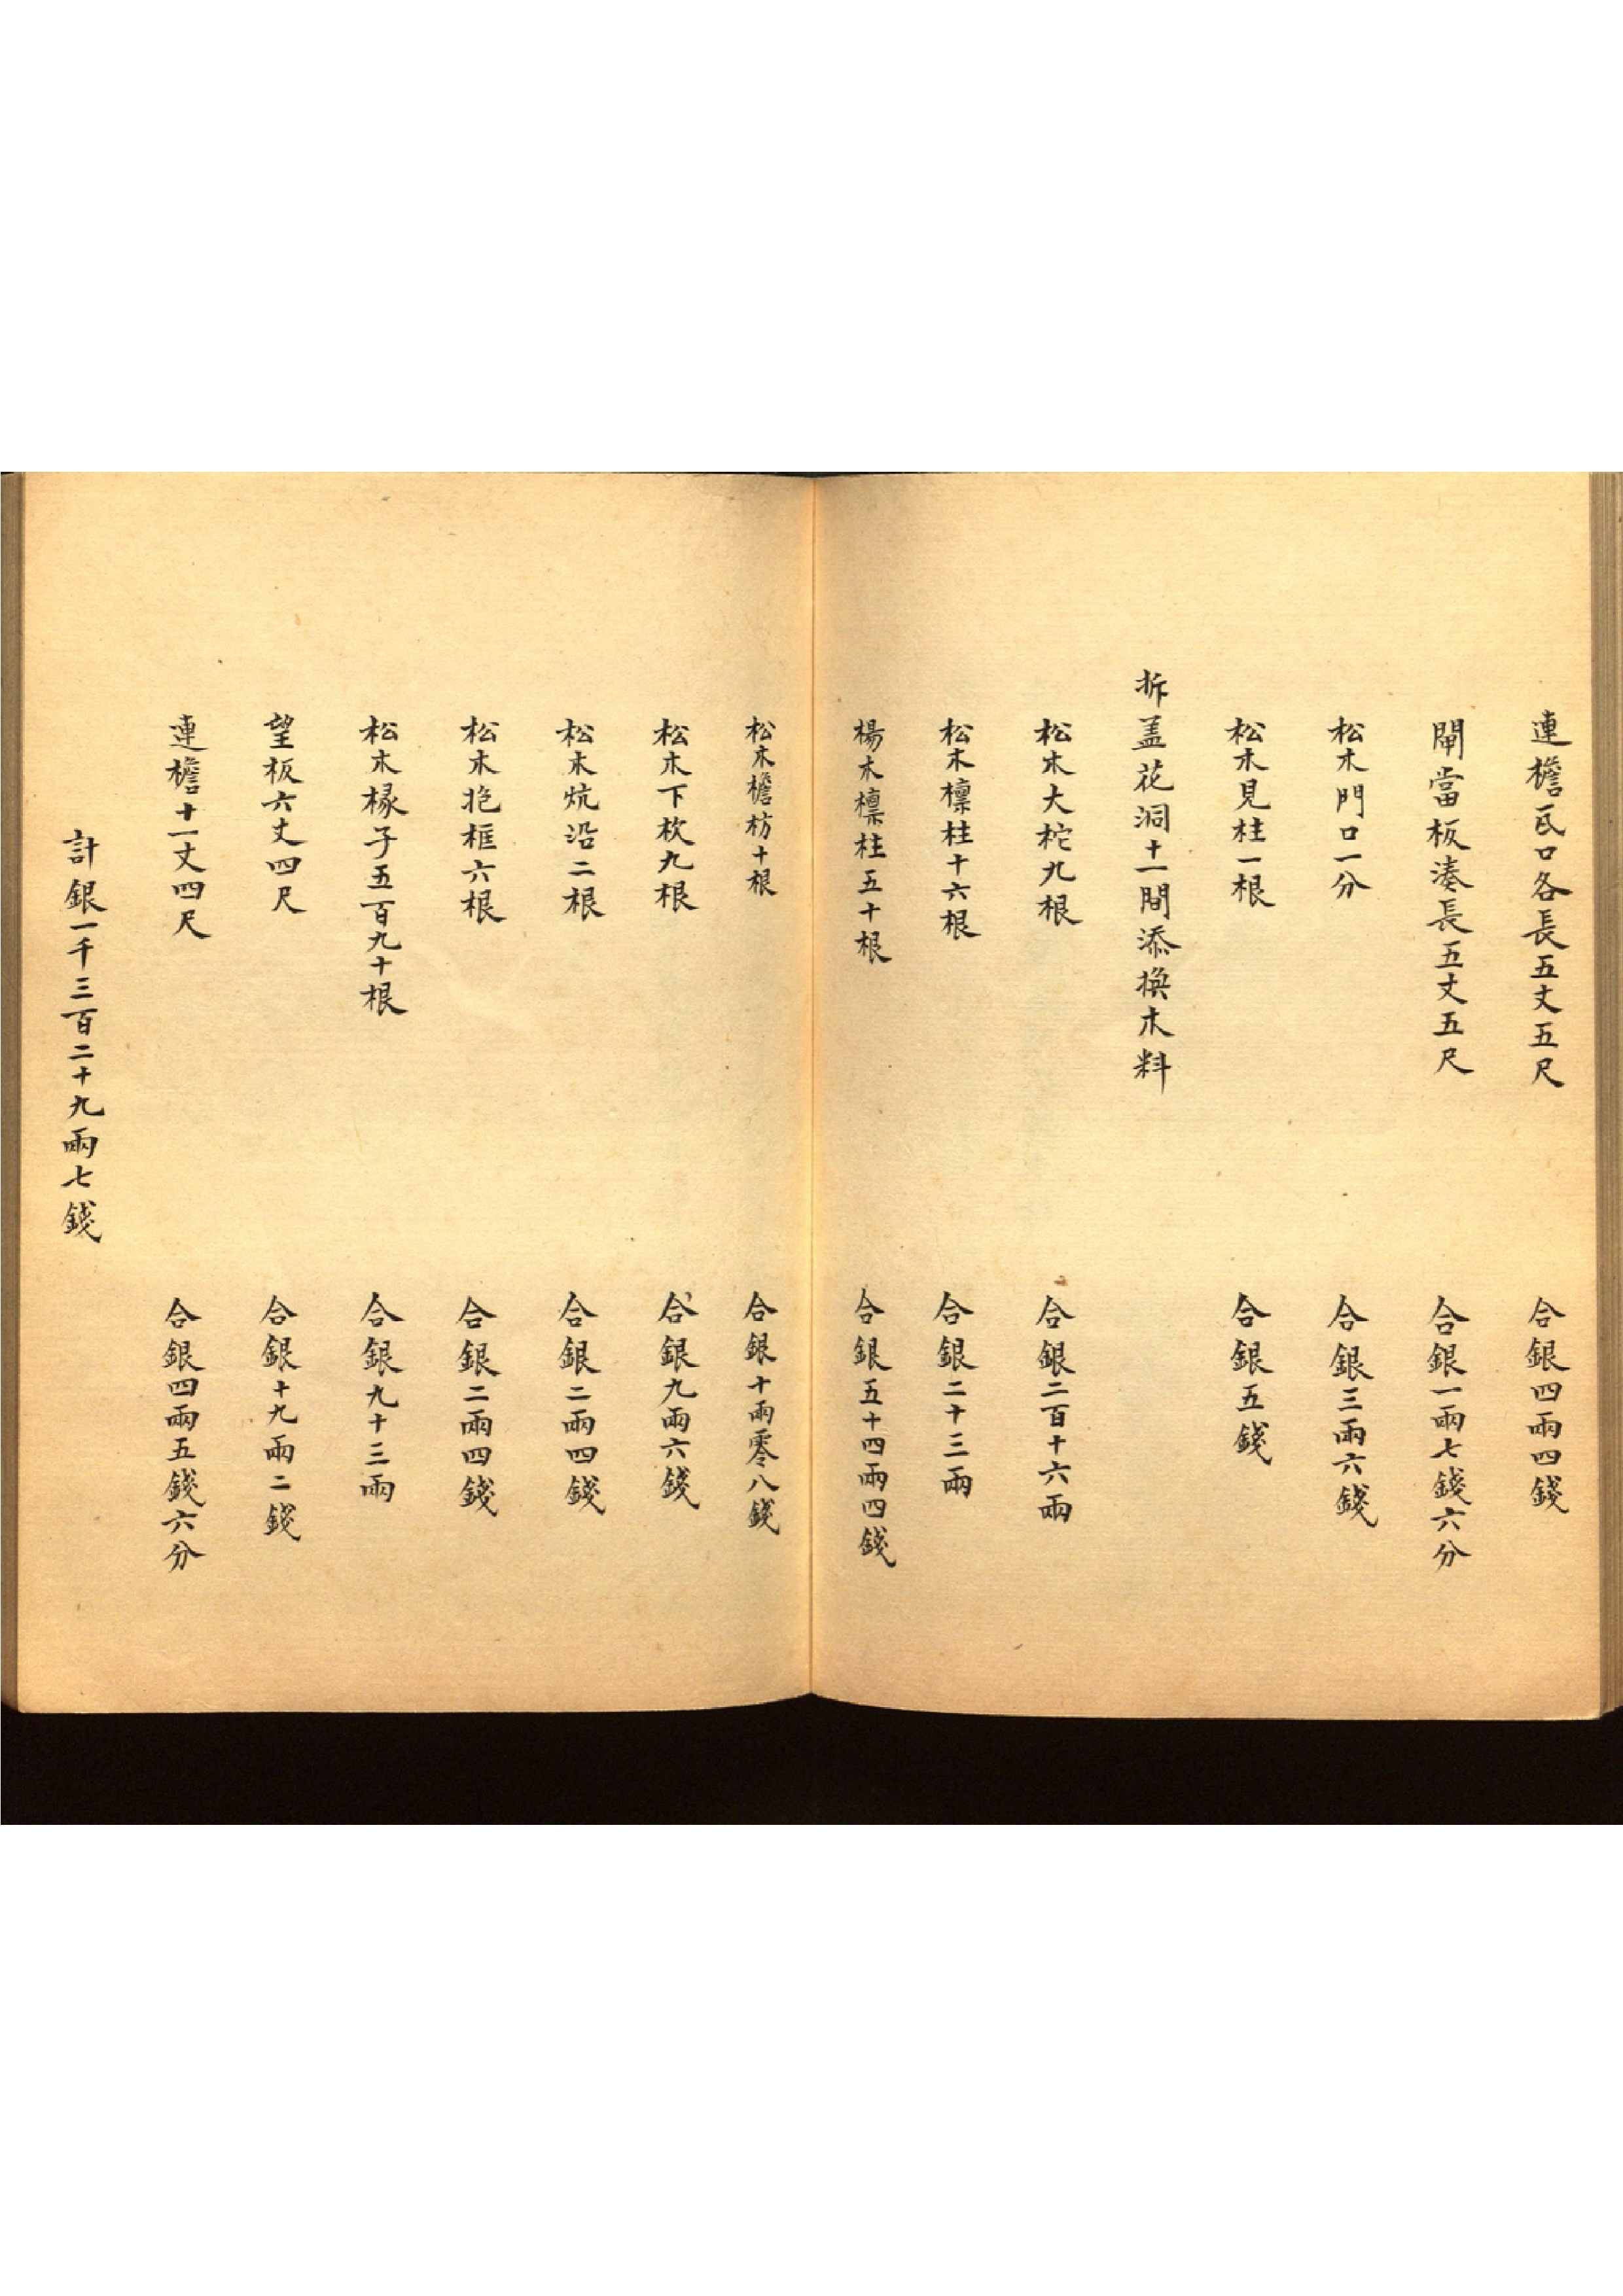 連檐瓦口各長五丈五尺 合銀四兩四錢
閘當板湊長五丈五尺 合銀一兩七錢六分
松木門口一分 合銀三兩六錢
松木見柱一根 合銀五錢
拆盖花洞十一間添換木料
松木大柁九根 合銀二百十六兩
松木檩柱十六根 合銀二十三兩
楊木檩柱五十根 合銀五十四兩四錢
松木檐枋十根 合銀十兩零八錢
松木下杴九根 合銀九兩六錢
松木炕沿二根 合銀二兩四錢
松木抱框六根 合銀二兩四錢
松木椽子五百九十根 合銀九十三兩
望板六丈四尺 合銀十九兩二錢
連檐十一丈四尺 合銀四兩五錢六分
計銀一千三百二十九兩七錢